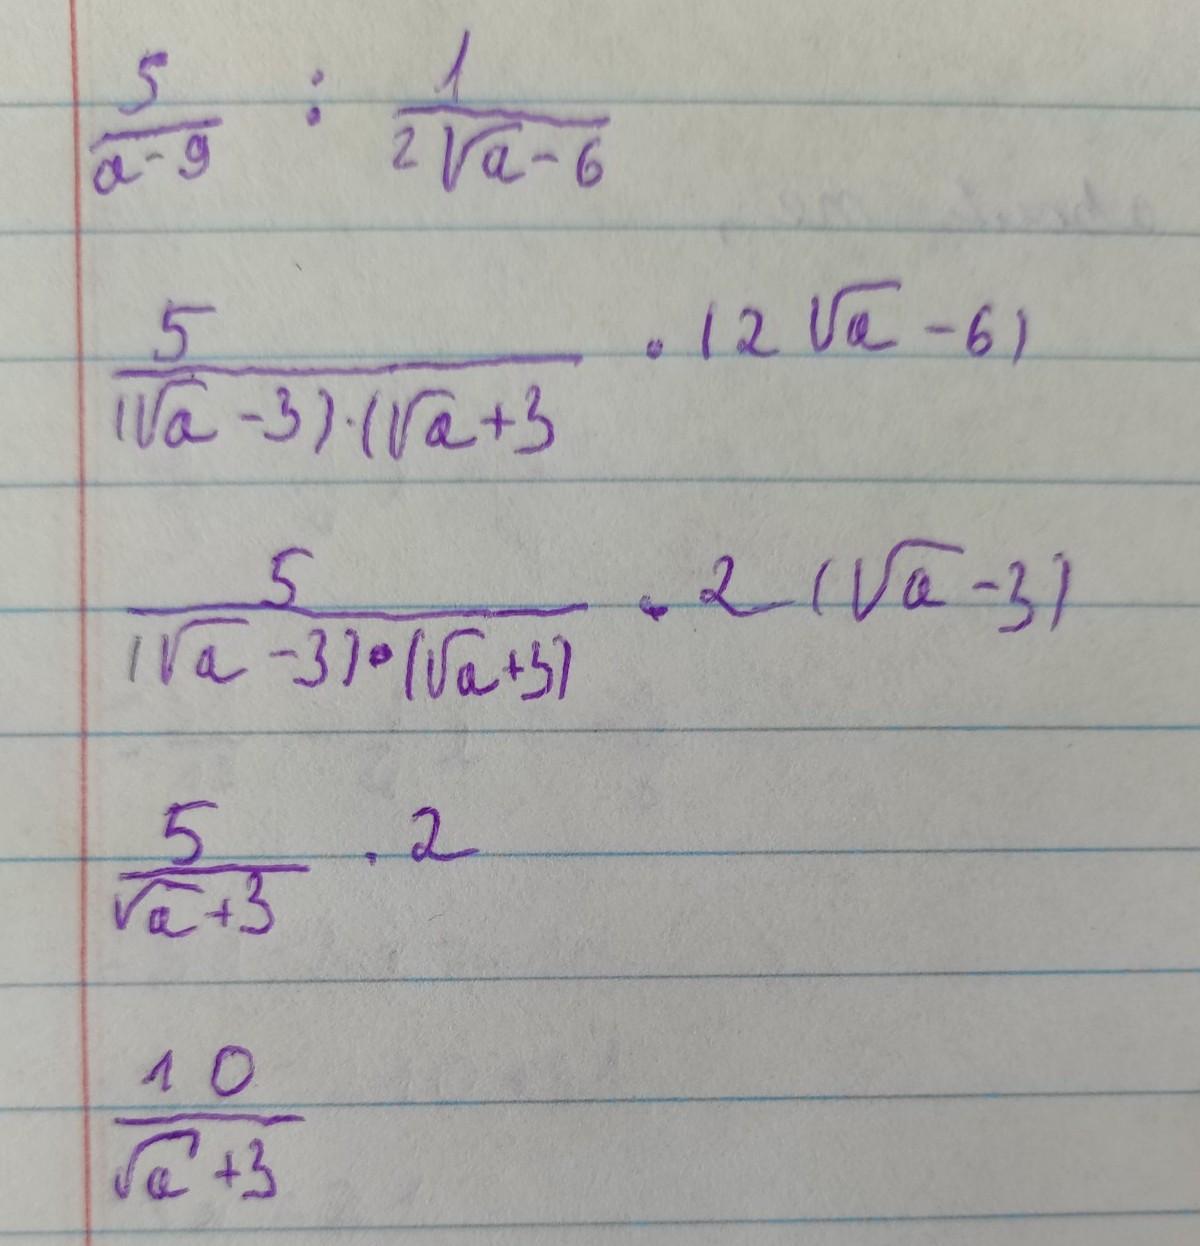 5/(a-9) : 1/(2√a-6)
5/((√a-3)·(√a+3 · (2√a-6)
5/((√a-3)·(√a+3)) · 2(√a-3)
5/(√a+3) · 2
10/(√a+3)